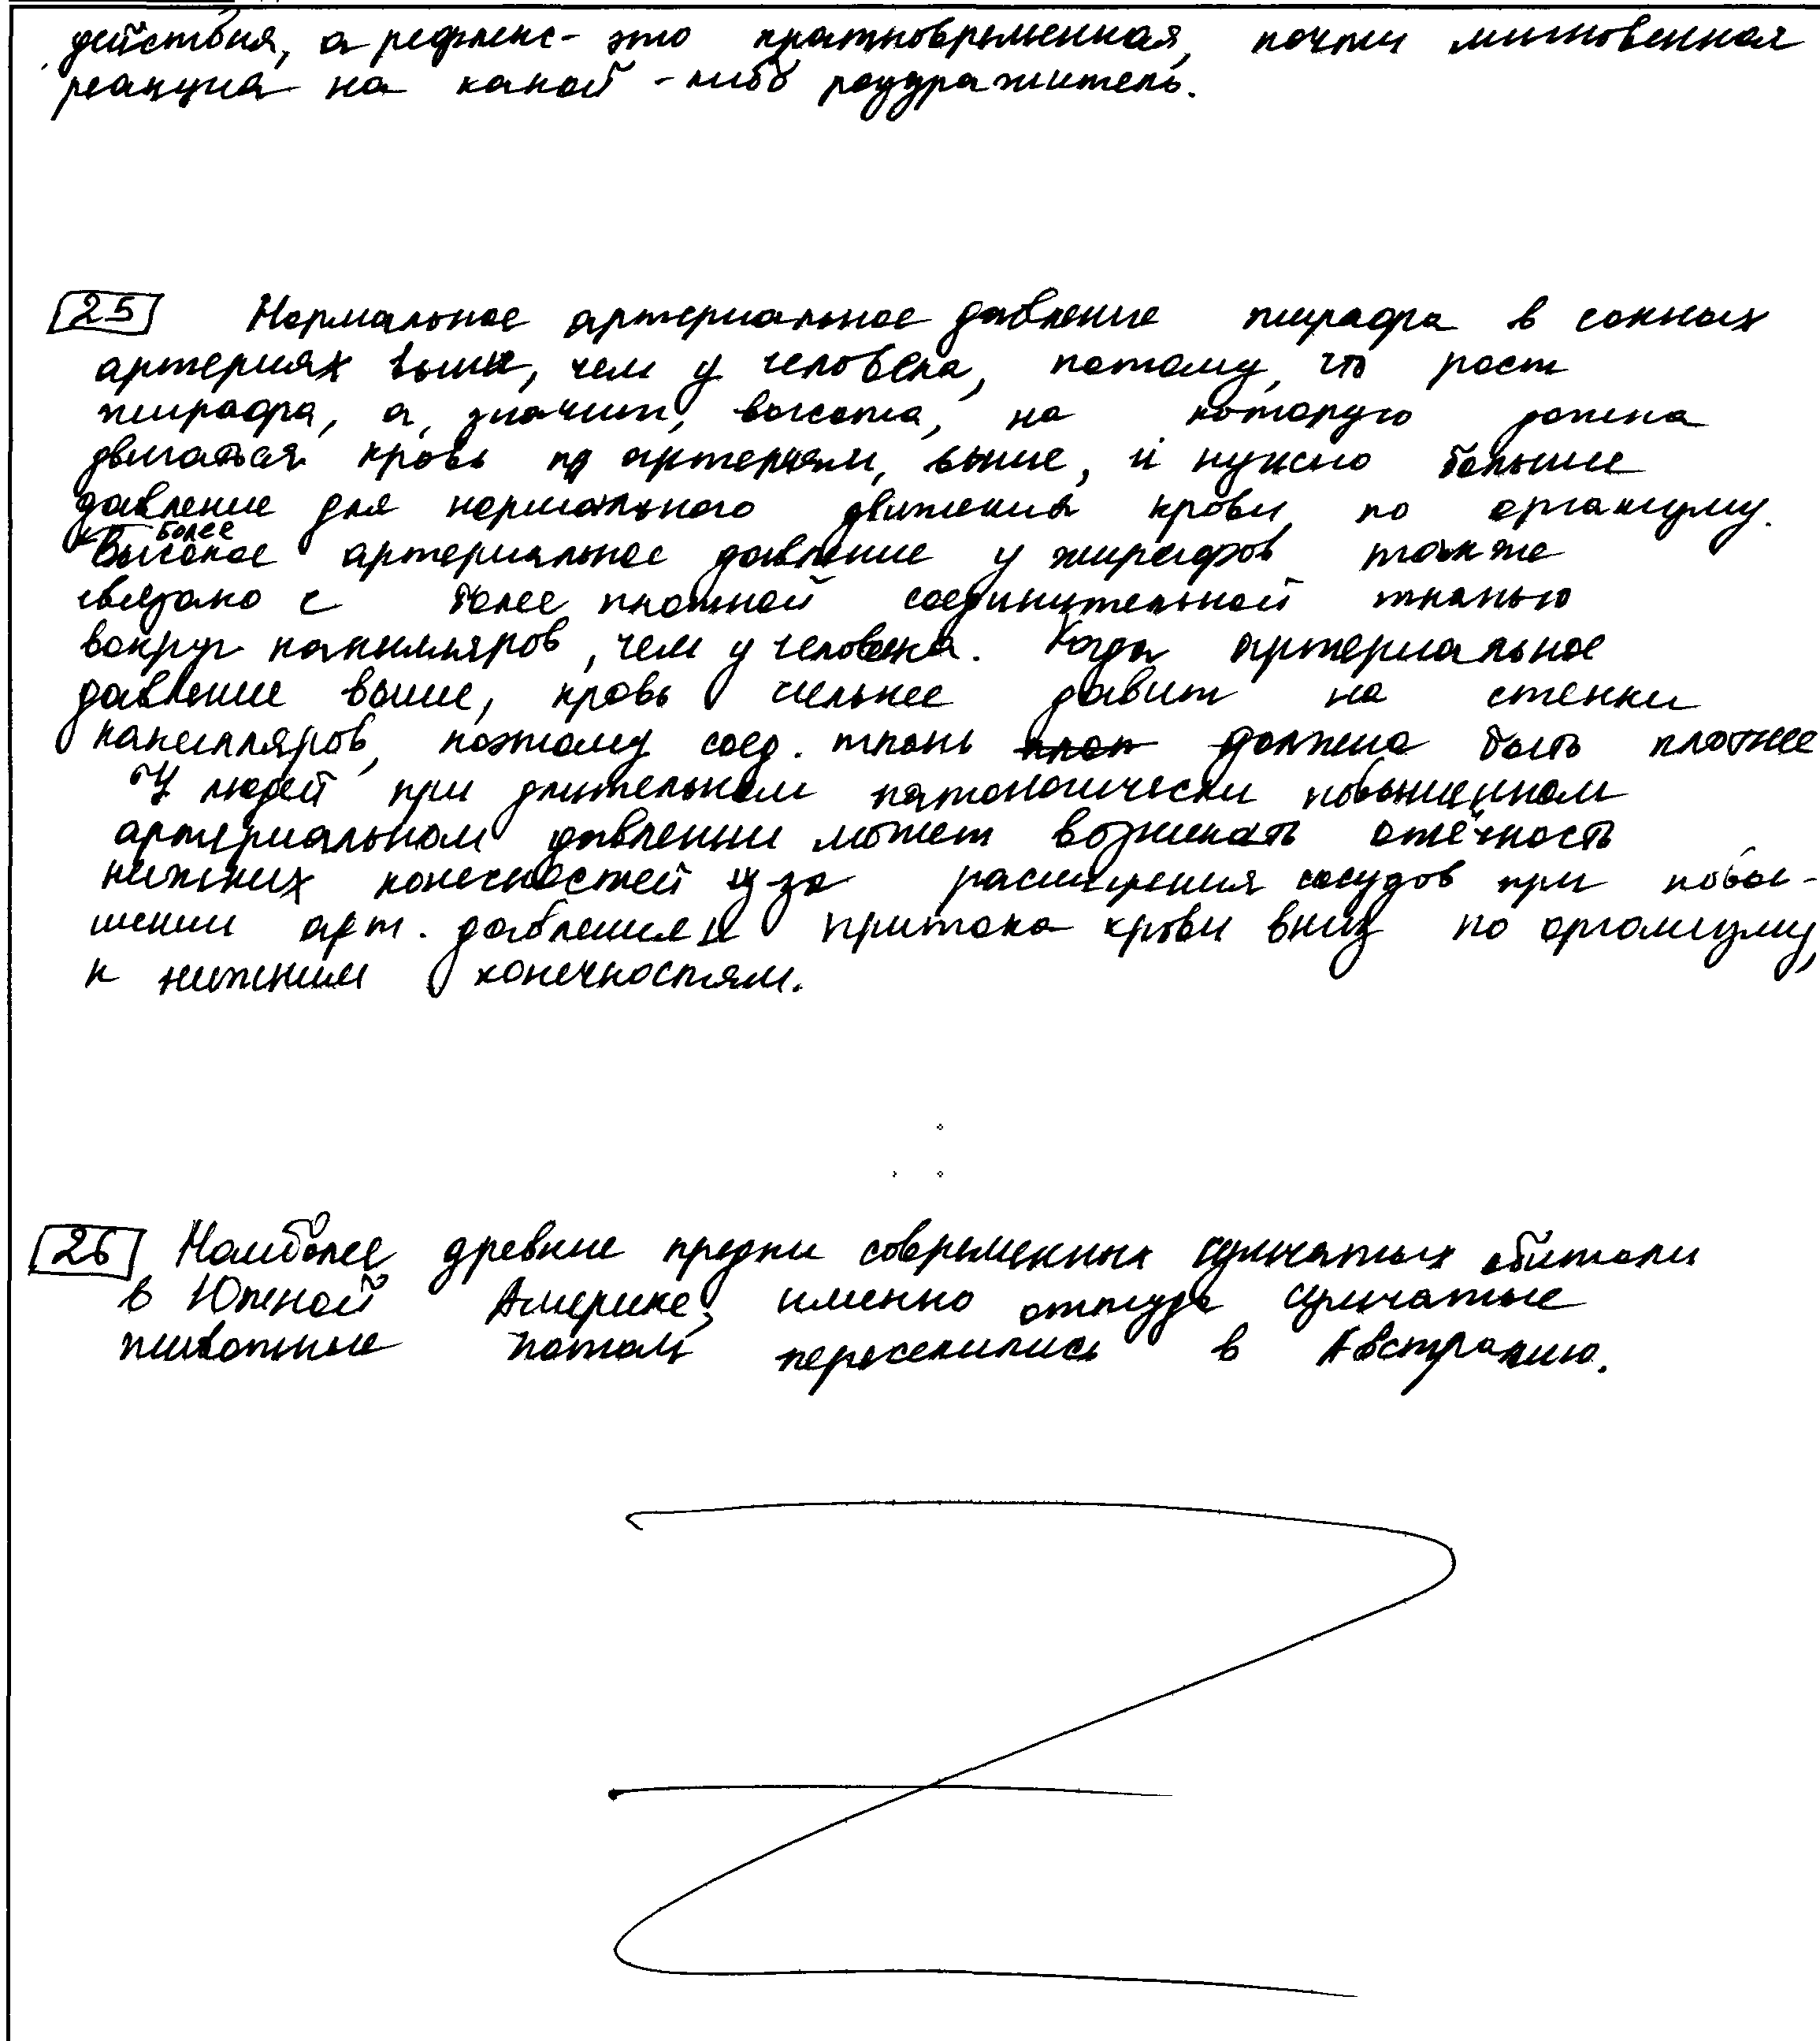 действия, а рефлекс - это кратковременная, почти мгновенная
реакция на какой-либо раздражитель.
25 Нормальное артериальное давление жирафа в сонных
артериях выше, чем у человека, потому, что рост
жирафа, а, значит, высота, на которую должна
двигаться кровь по артериям, выше, и нужно больше
давление для нормального движения крови по организму.
более
Высокое артериальное давление у жирафов также
связано с более плотной соединительной тканью
вокруг капилляров, чем у человека. Когда артериальное
давление выше, кровь сильнее давит на стенки
капилляров, поэтому соед. ткань должна быть плотнее
У людей при длительном патологически повышенном
артериальном давлении может возникать отёчность
нижних конечностей из-за расширения сосудов при повы-
шении арт. давления и притока крови вниз по организму,
к нижним конечностям.
26 Наиболее древние предки современных сумчатых обитали
в Южной Америке, именно оттуда сумчатые
животные потом переселились в Австралию.